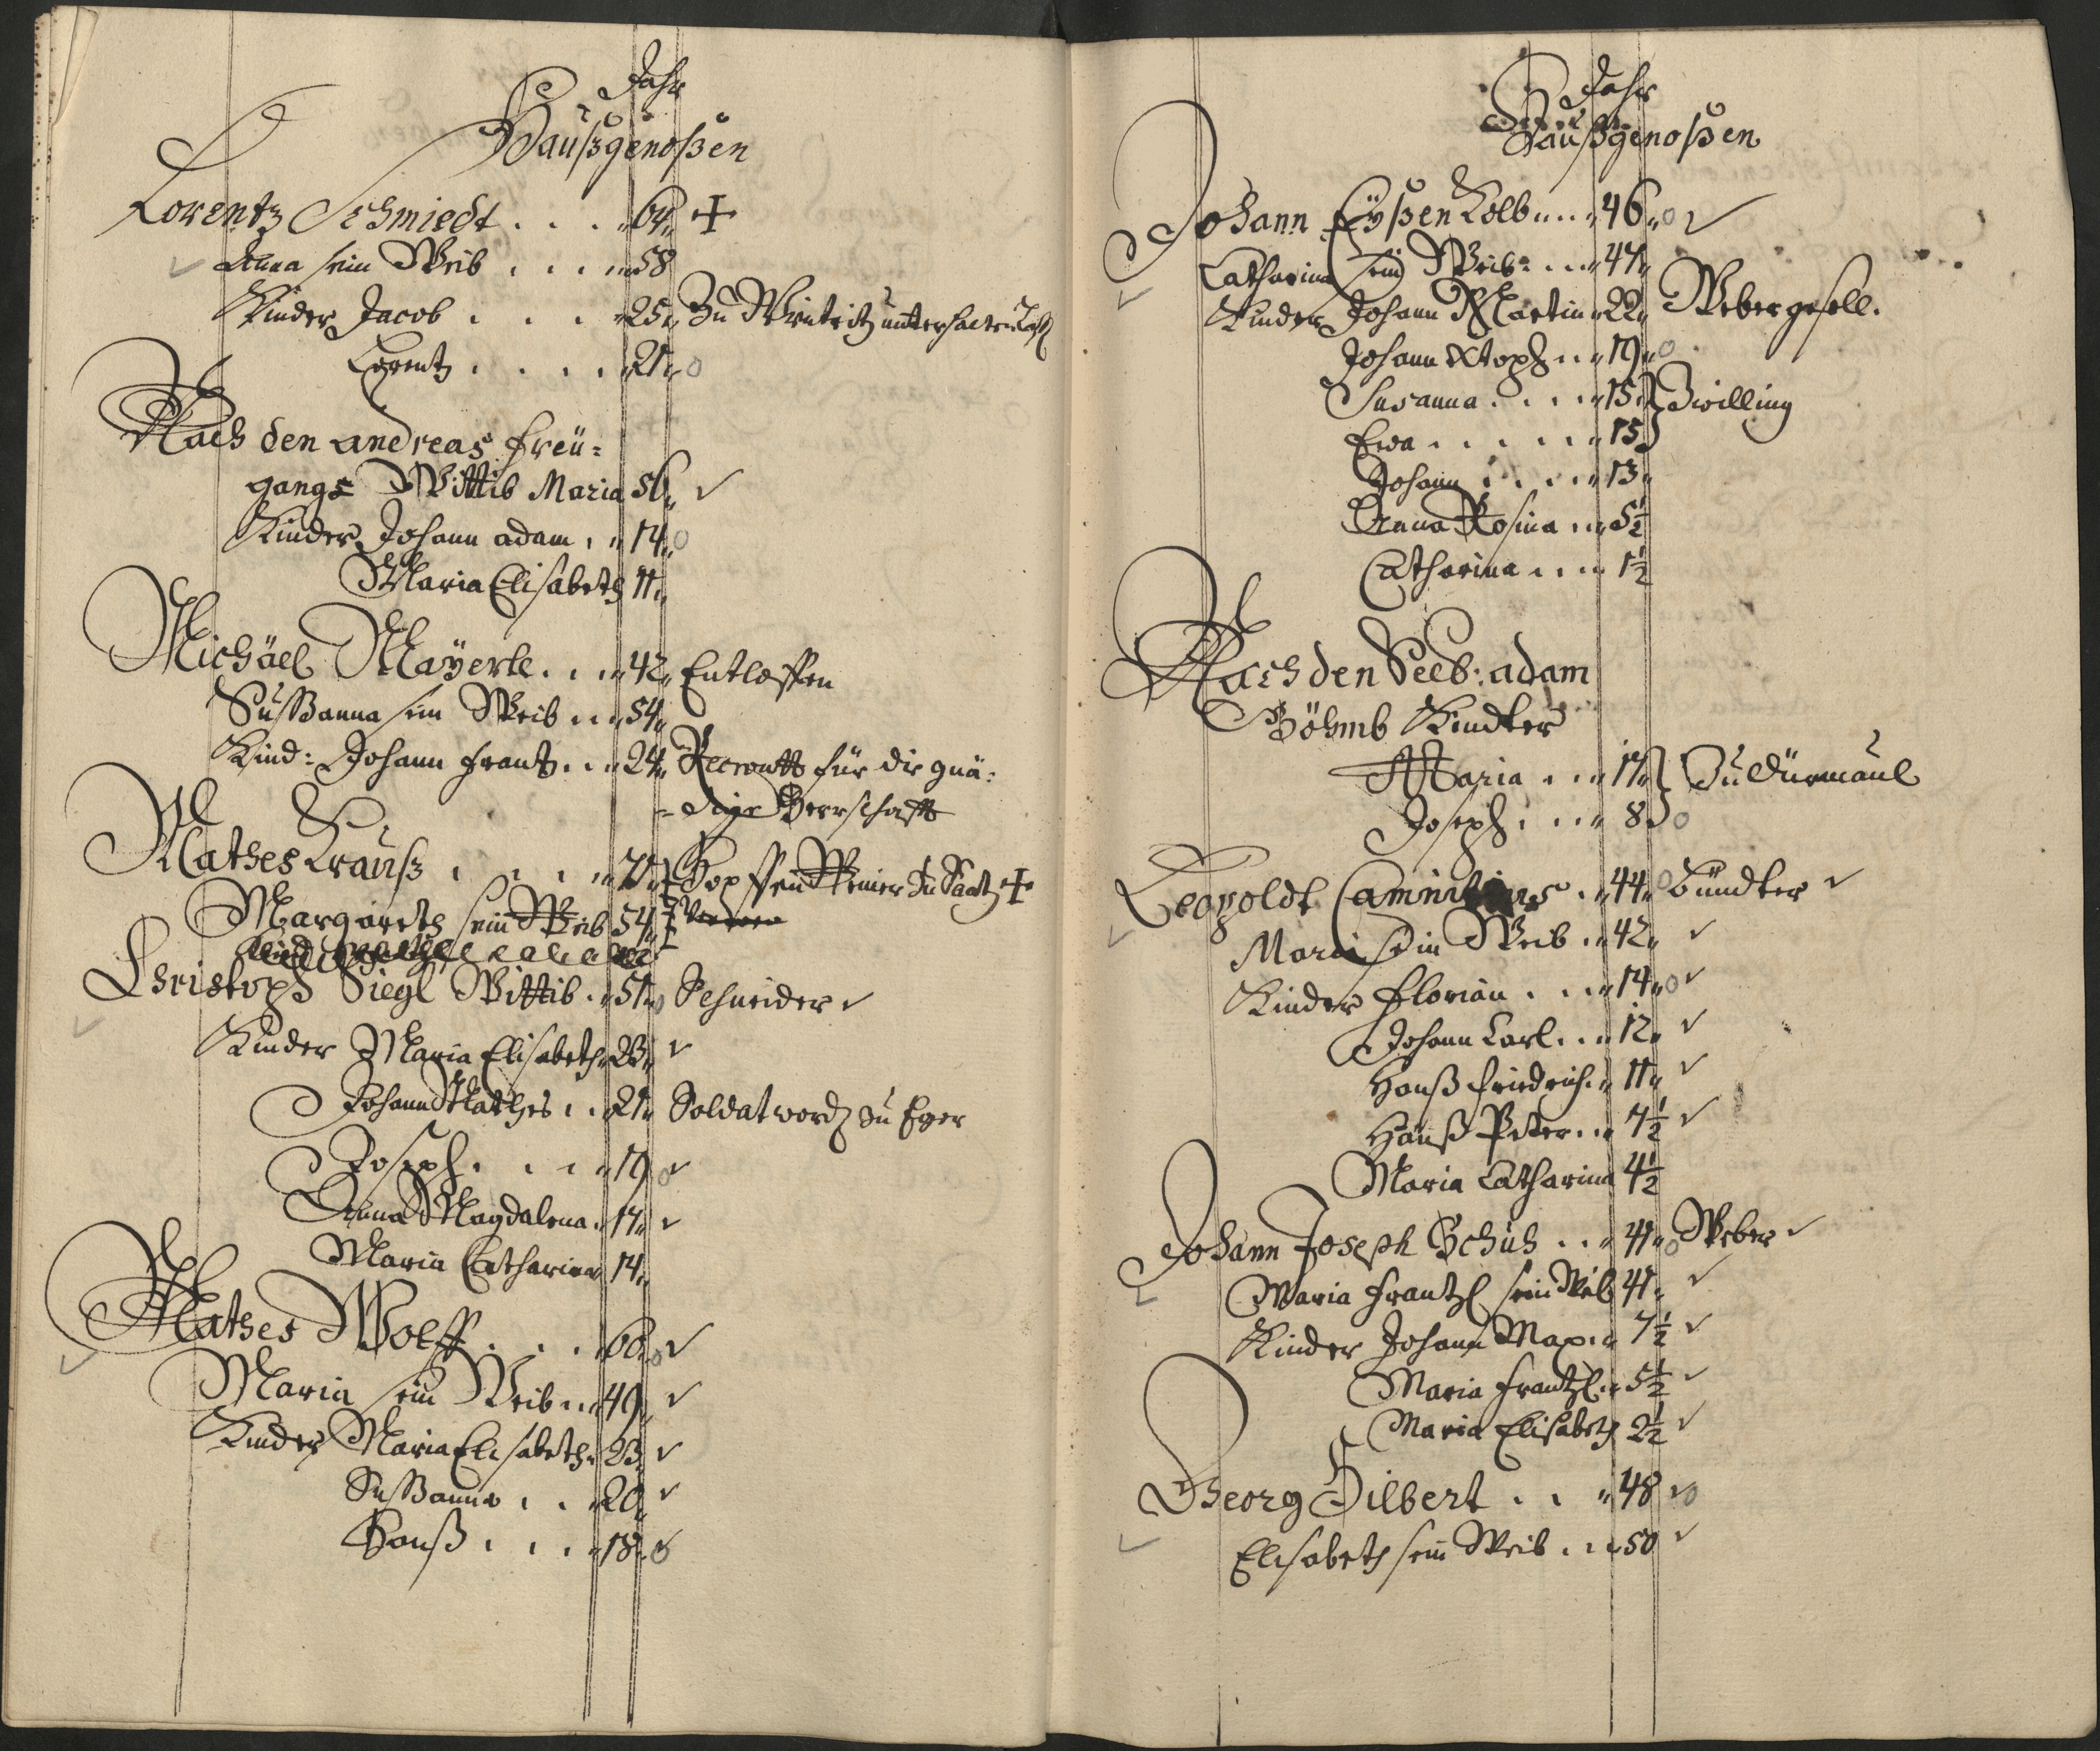 Jahr
Haußgenoßen
Lorentz Schmiedt . . . 64
Anna sein Weib . . . 58
Kinder Jacob . . . 25 Zu
Lorentz . . . . 21
Nach den andreas freü=
gangs Wittib Maria 56
Kinder Johann adam . 14
Maria Elisabeth 11
Michäel Mayerle . . . 42 Entloffen
Sußanna sein Weib . . . 54
Kind: Johann Frantz . . 24 Recroutt für die gnä:
=dige Herrschafft
Mathes Krauß . . . . 77 Zu Saatz
Margareth sein Weib 54
Christoph Siegl Wittib . 51 Schneider
Kinder Maria Elisabeth 23
Johann Mathes . . 21 Soldat word zu Eger
Joseph . . . . 19
Anna Magdalena . 17
Maria Catharina 14
Mathes Wolff . . . 60
Maria sein Weib . . . 49
Kinder Maria Elisabeth 23
Sußanna . . . 20
Hanß . . . . 18
Jahr
Haußgenoßen
Johann Eyßen Kolb . . . 46
Catharina sein Weib . . . 47
Kinder Johann Martin 22 Webergesell.
Johann Xtoph . . . 19
Susanna . . . . 15 Zwilling
Eva . . . . . . 15
Johann . . . . . 13
Anna Rosina . . . 5½
Catharina . . . . 1½
Nach den Seel: adam
Böhmb Kindter
Maria . . . 17 Zu Dürmaul
Joseph . . . . 8
Leopoldt . 44
Maria sein Weib . . 42
Kinder Florian . . . 14
Johann Carl . . . 12
Hanß Friedrich . . 11
Hanß Peter . . . 7½
Maria Catharina 4½
Johann Joseph Schuh . . . 41 Weber
Maria Frantzl sein Weib 41
Kinder Johann Max . . 7½
Maria Frantzl . . 5½
Maria Elisabeth 2½
Georg Hilbert . . . 48
Elisabeth sein Weib . . . 50